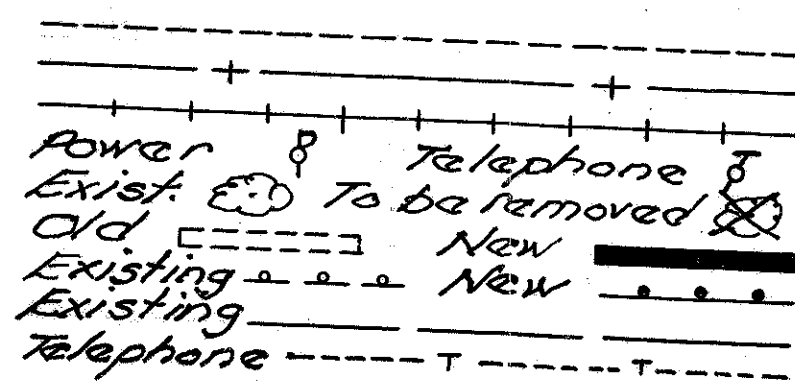 Power P Telephone T
Exist. To be removed
Old New
Existing New
Existing
Telephone T T